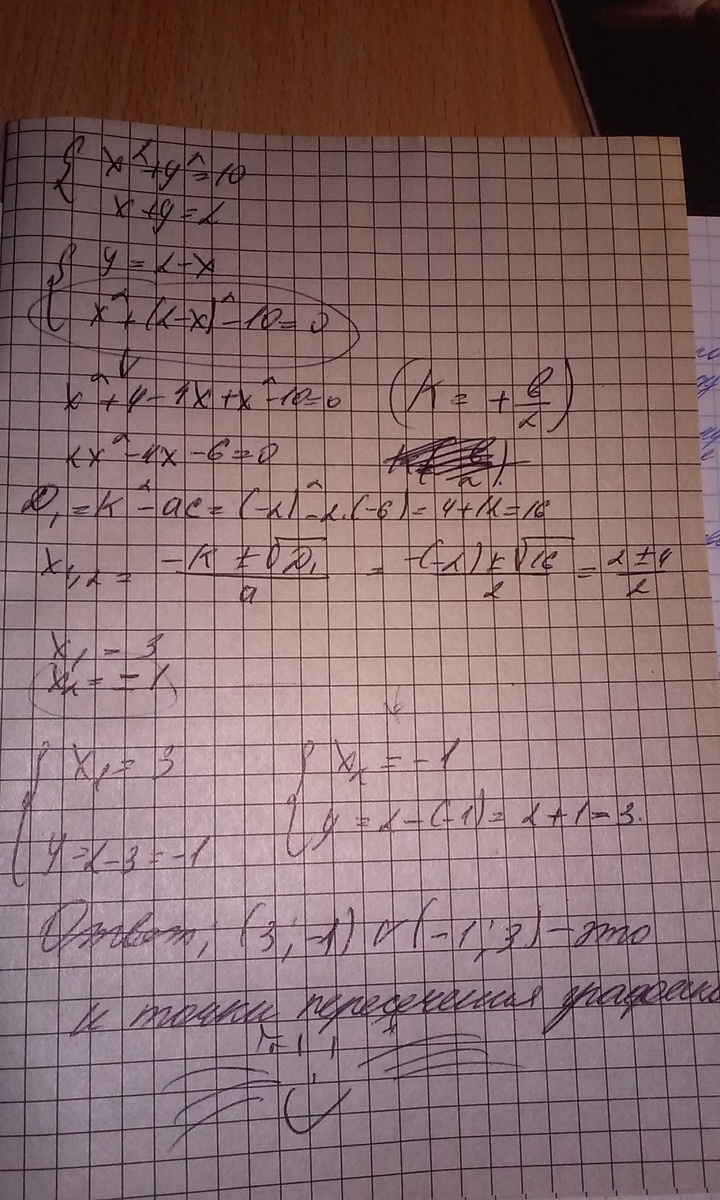 { x²+y²=10
x+y=2
{ y=2-x
x²+(2-x)²-10=0
x²+4-4x+x²-10=0 (K=+в/2)
2x²-4x-6=0
D₁=K²-ac=(-2)²-2·(-6)=4+12=16
x₁,₂= (-K±√D₁)/a = (-(-2)±√16)/2 = (2±4)/2
x₁=3
x₂=-1
{ x₁=3 { x₂=-1
y=2-3=-1 y=2-(-1)=2+1=3.
Ответ; (3;-1) v (-1;3)-это
и точки пересечения графиков